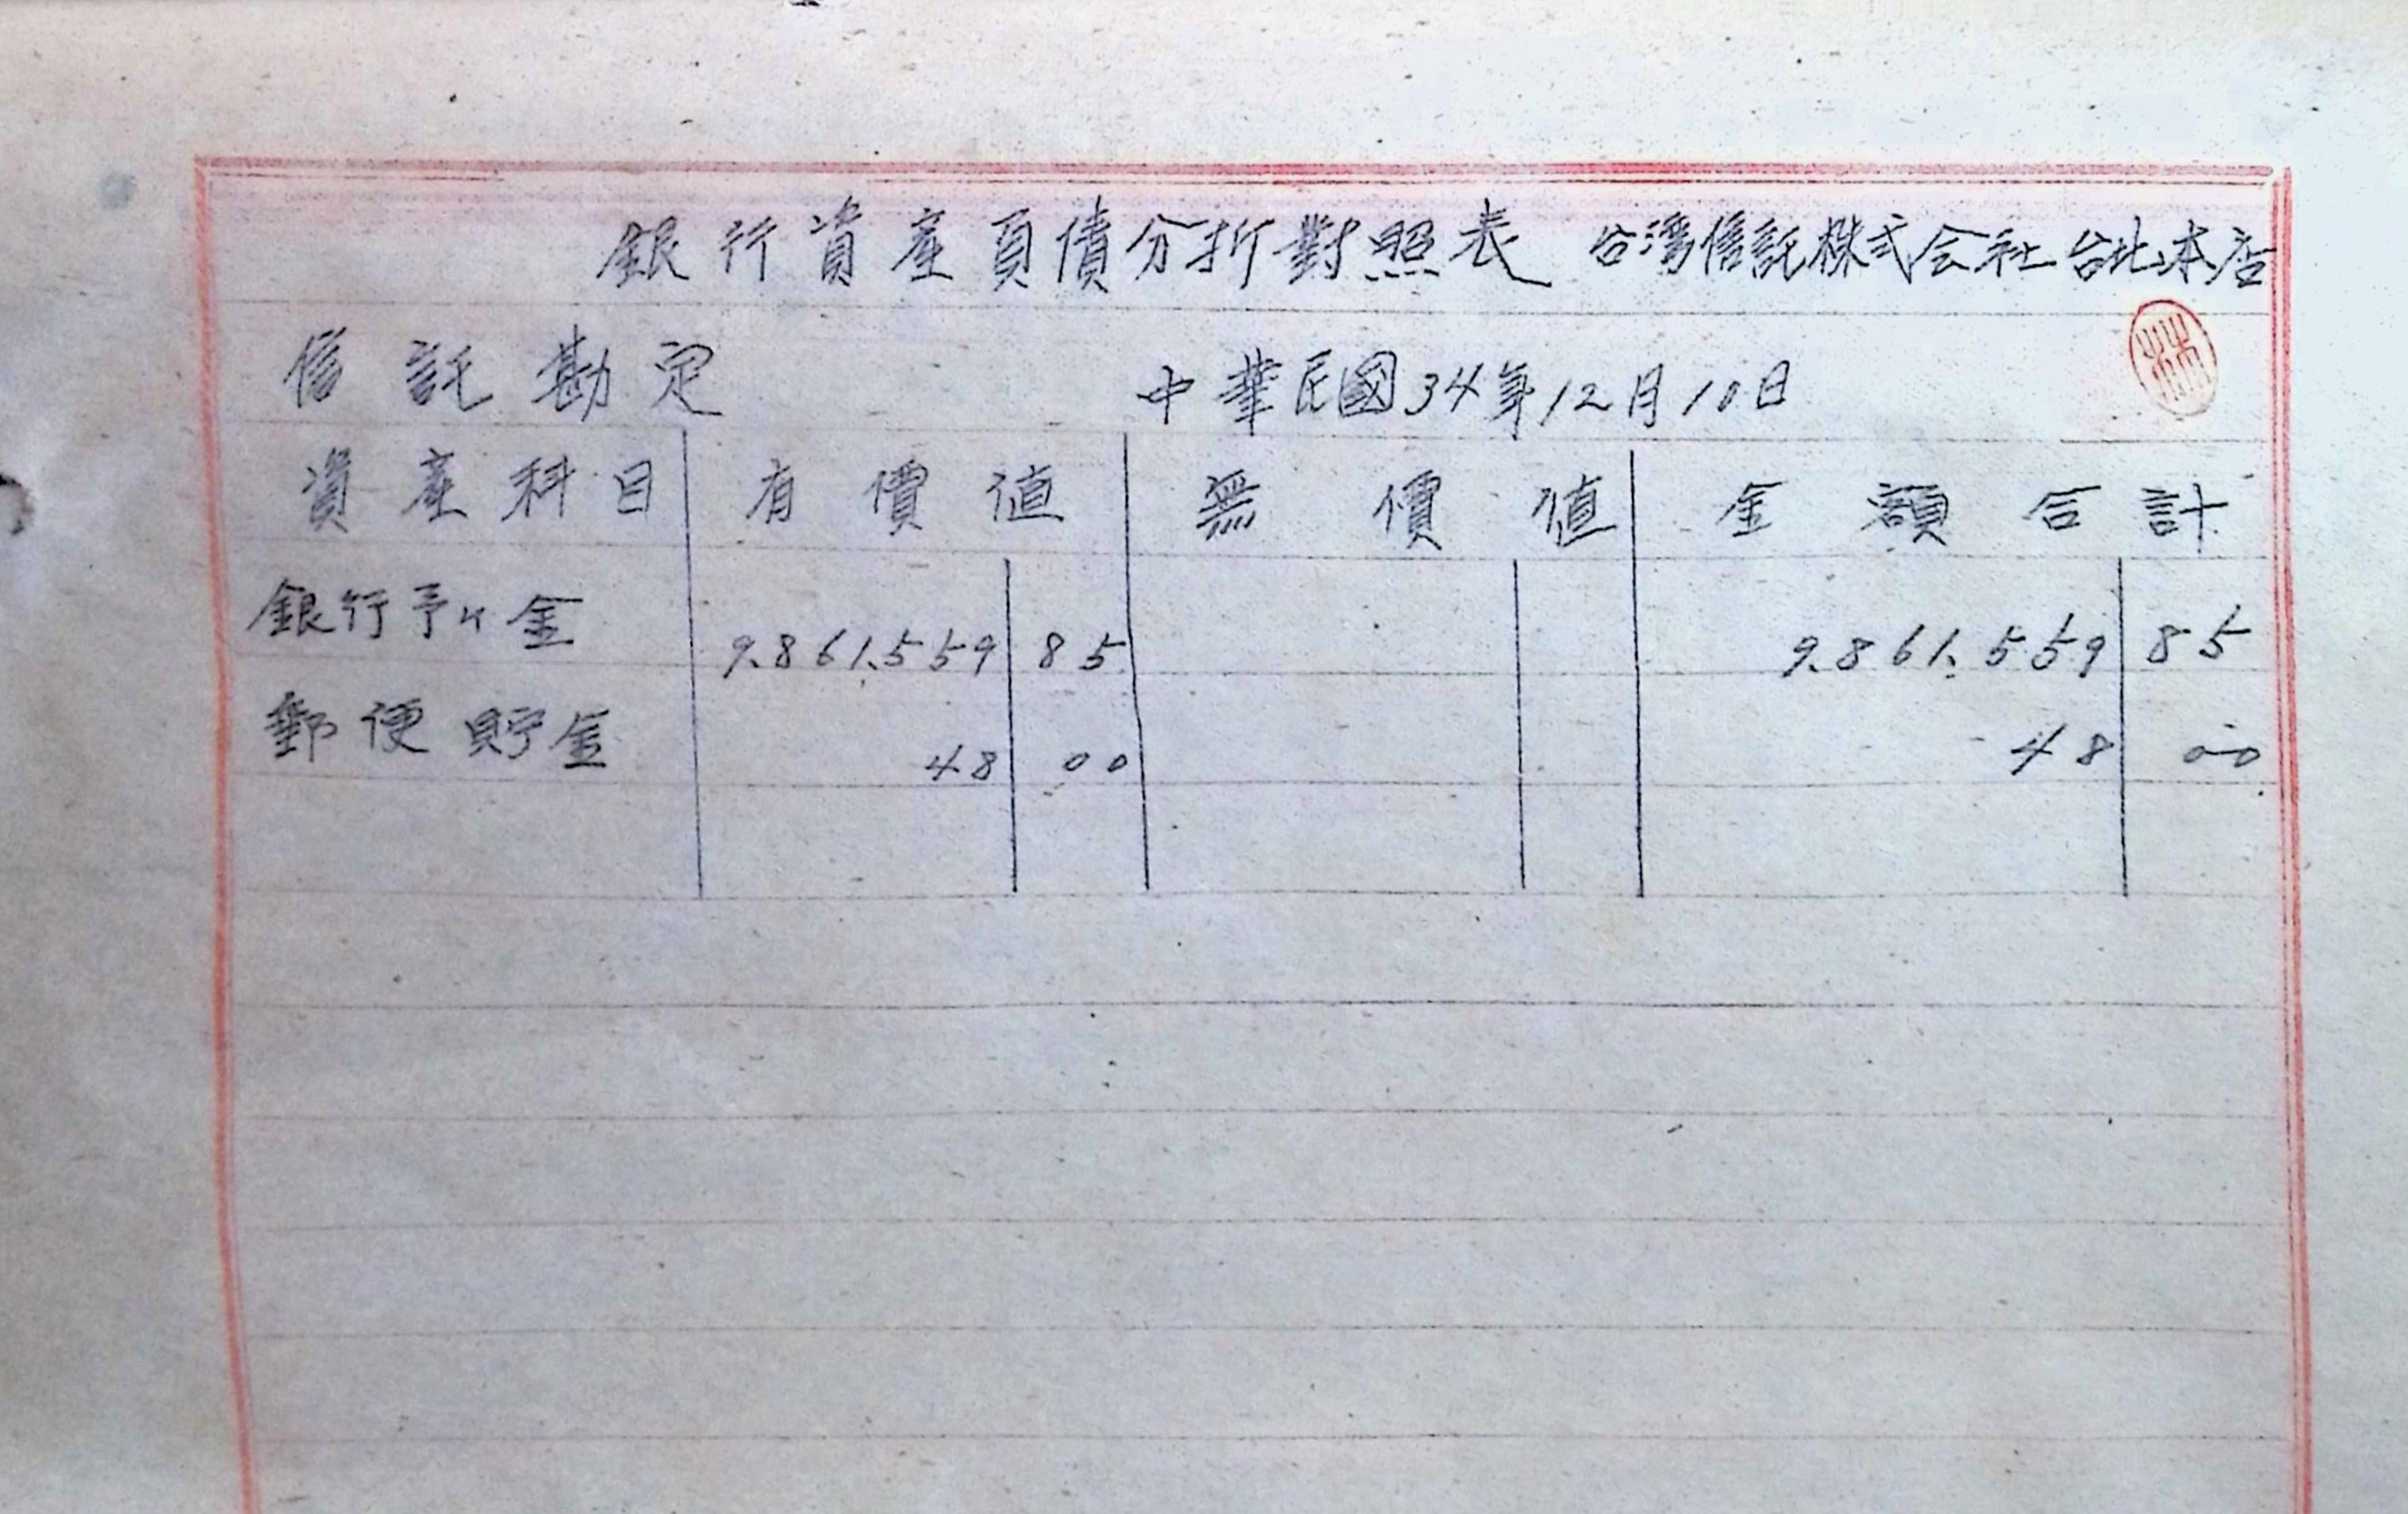 銀行資產負債分折對照表 台湾信託株式会社台北本店
信託勘定 中華民國34年12月10日
資產科目 有價值 無價值 金額合計
銀行予ケ金 9.861.559 85 9.861.559 85
郵便貯金 48 00 48 00